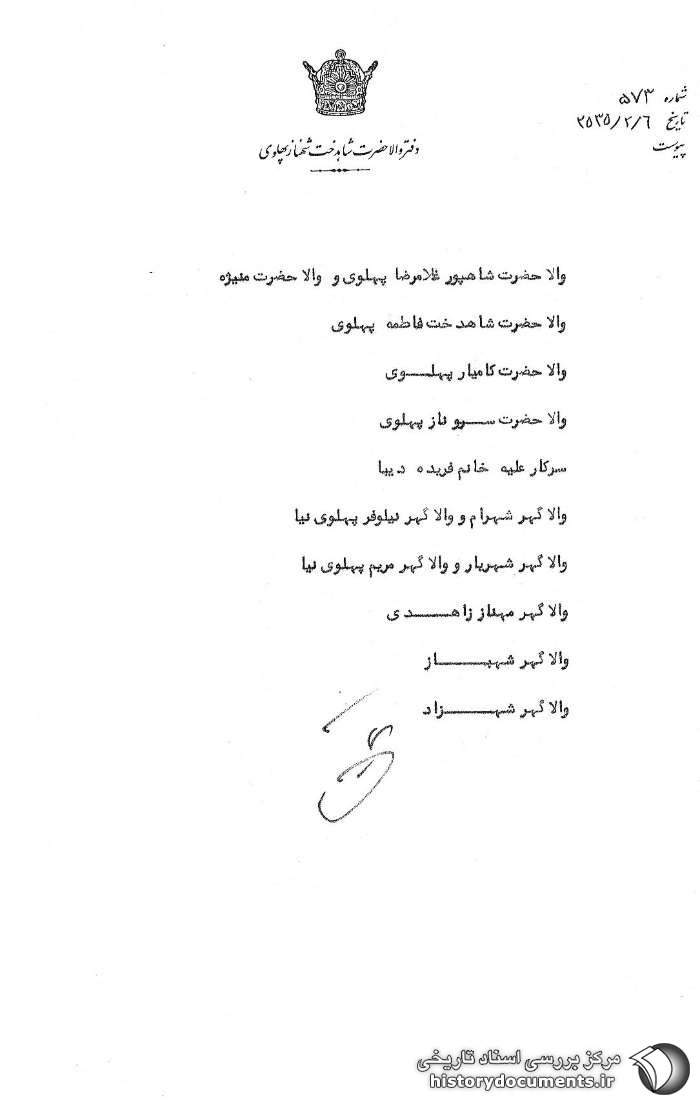 شماره ۵۷۳
تاریخ ۲۵۳۵/۲/۶
پیوست
دفتر والاحضرت شاهدخت شهناز پهلوی
والا حضرت شاهپور غلامرضا پهلوی و والا حضرت منیژه
والا حضرت شاهدخت فاطمه پهلوی
والا حضرت کامیار پهلـــوی
والا حضرت ســرو ناز پهلوی
سرکار علیه خانم فریده دیبا
والا گهر شهرام و والا گهر نیلوفر پهلوی نیا
والا گهر شهریار و والا گهر مریم پهلوی نیا
والا گهر مهناز زاهـــدی
والا گهر شهبـــــاز
والا گهر شهـــــزاد
مرکز بررسی اسناد تاریخی
historydocuments.ir